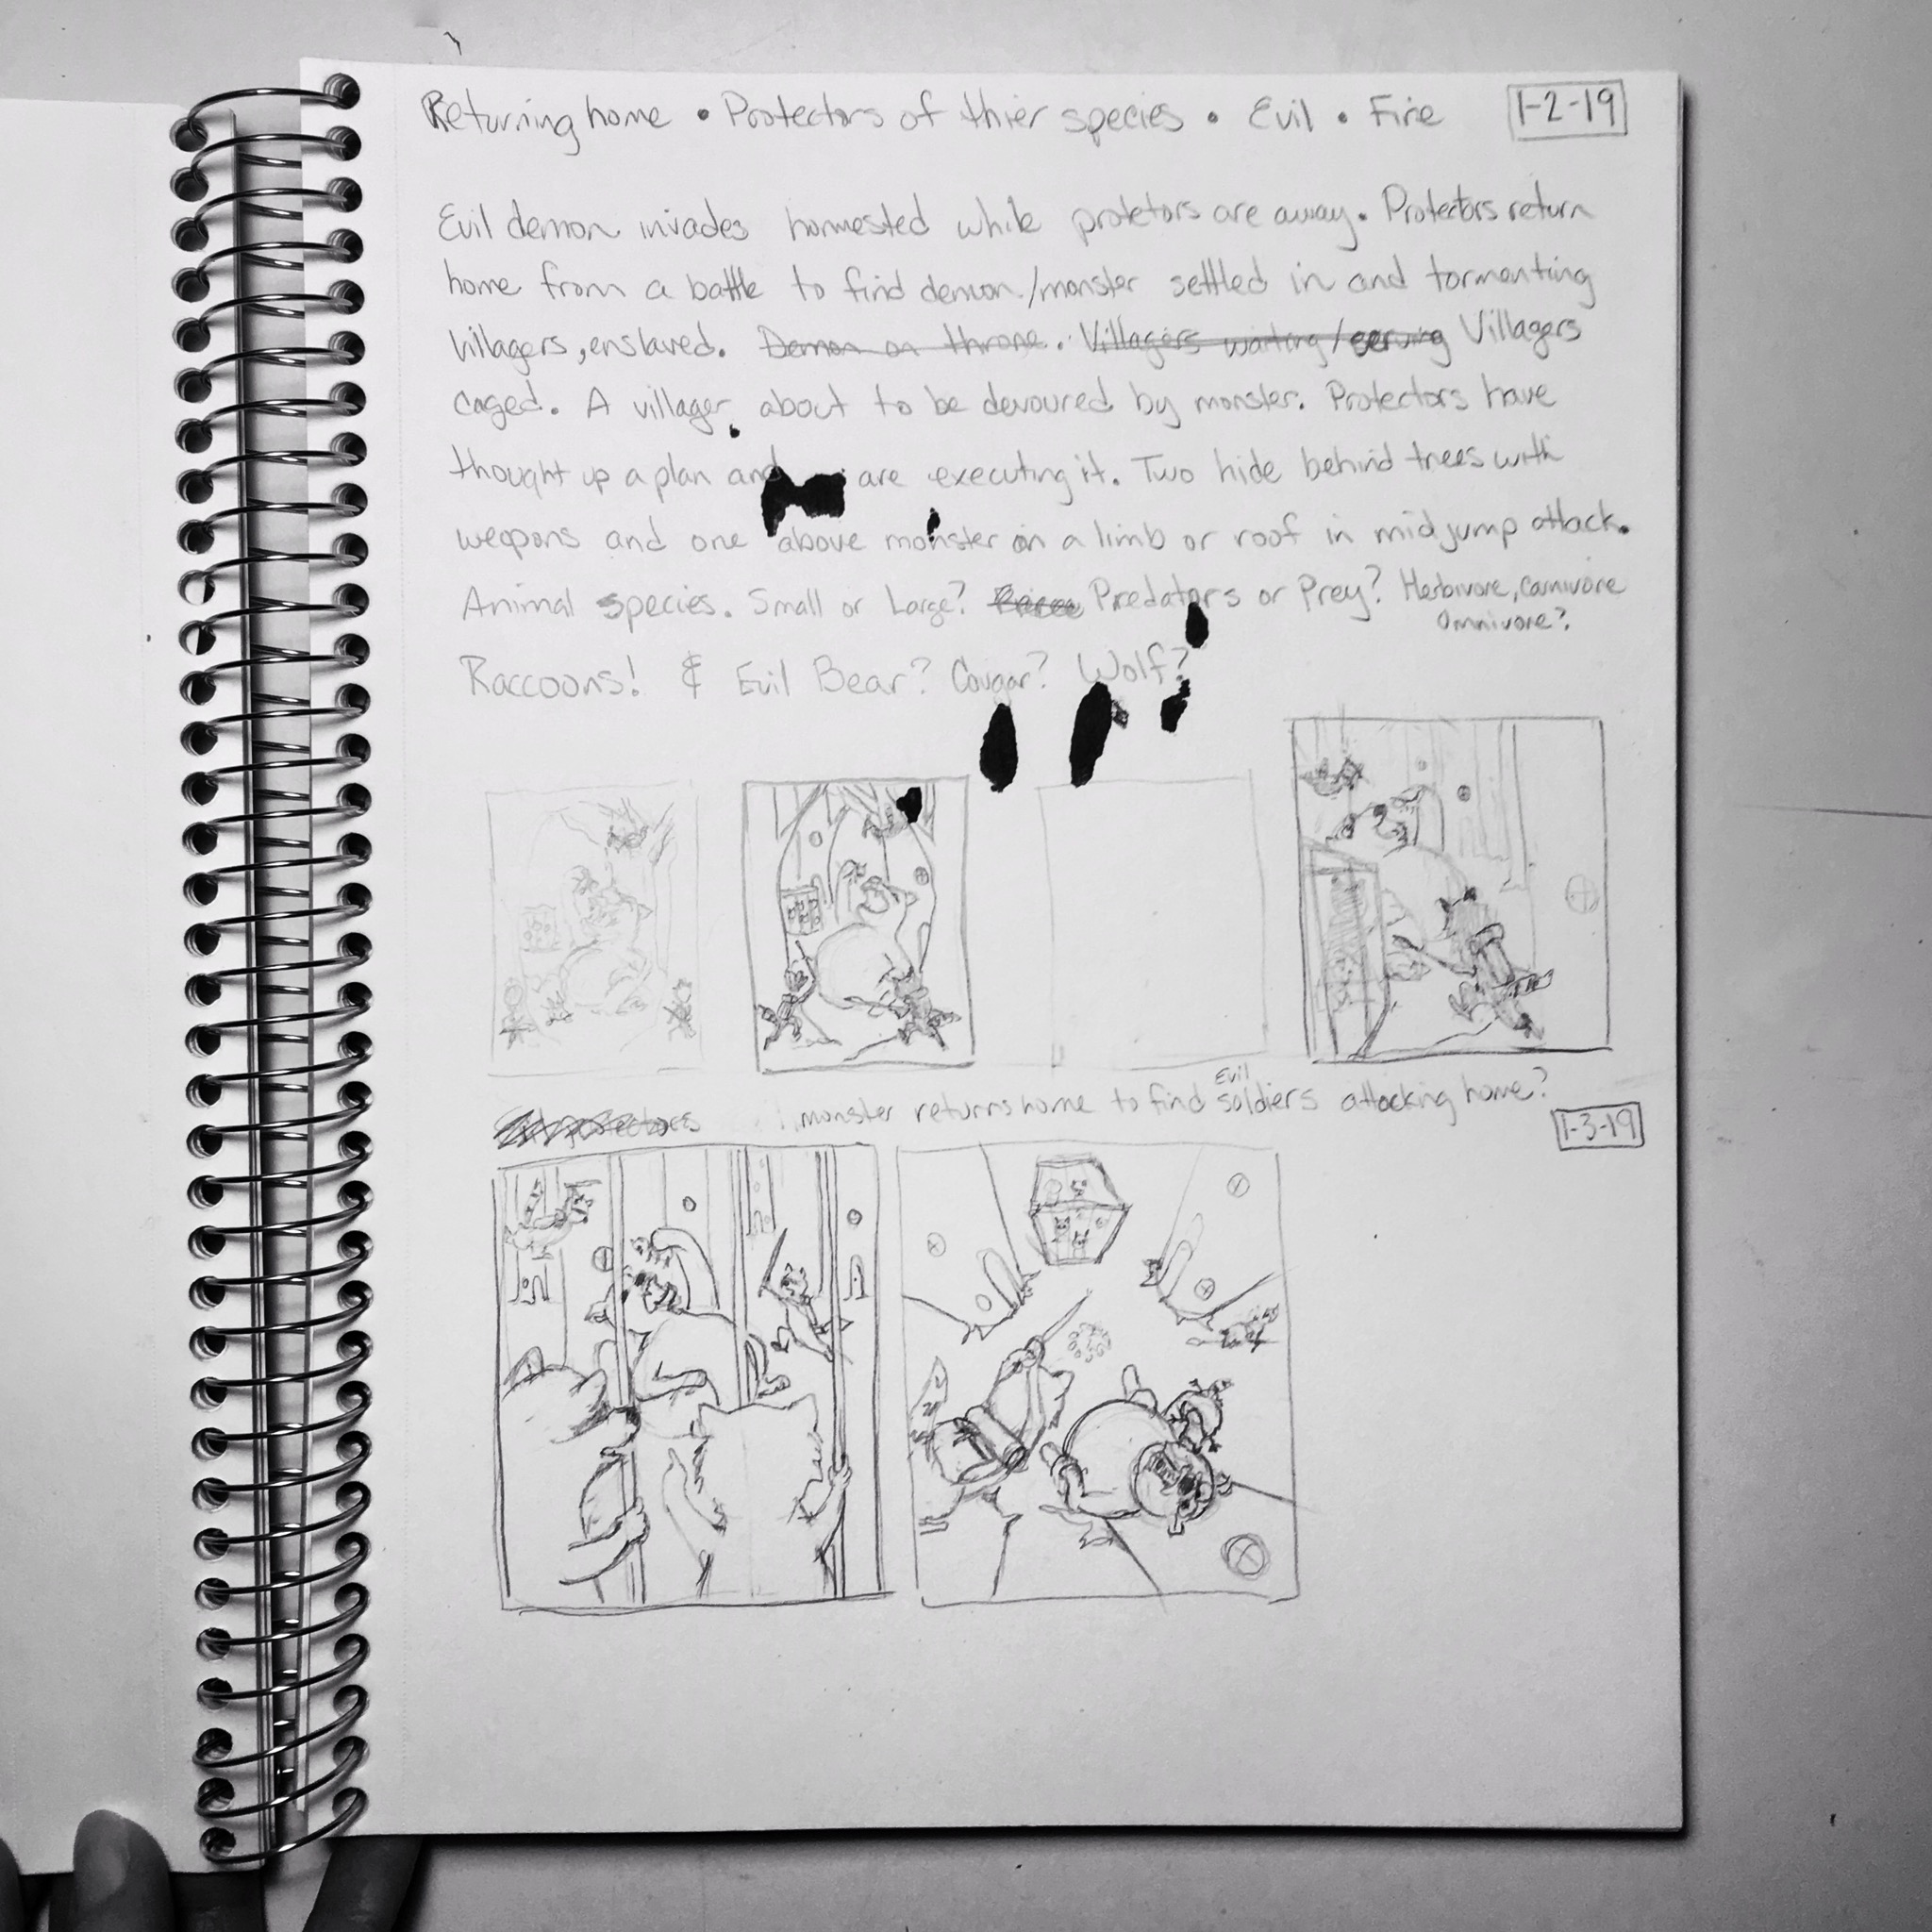 Returning home • Protectors of thier species • Evil • Fire 1-2-19
Evil demon invades homested while protetors are away. Protectors return
home from a battle to find demon/monster settled in and tormenting
villagers, enslaved. Demon on throne. Villagers waiting/serving Villagers
caged. A villager about to be devoured by monster. Protectors have
thought up a plan and are executing it. Two hide behind trees with
weapons and one above monster on a limb or roof in midjump attack.
Animal species. Small or Large? Predators or Prey? Herbivore, Carnivore
Omnivore?
Raccoons! & Evil Bear? Cougar? Wolf?
Evil
protectors monster returns home to find soldiers attacking home?
1-3-19